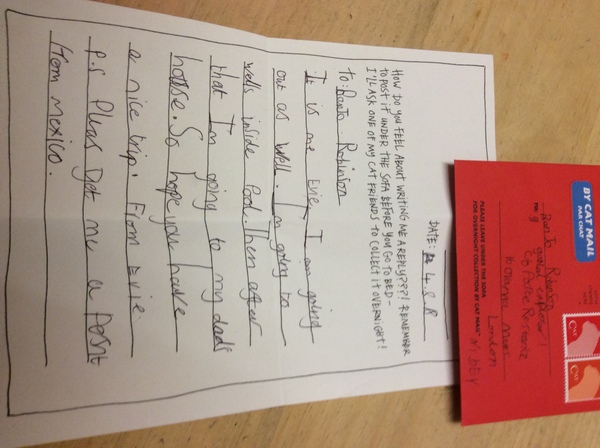 DATE: 4.8.8
HOW DO YOU FEEL ABOUT WRITING ME A REPLY???! REMEMBER
TO POST IF UNDER THE SOFA BEFORE YOU GO TO BED -
I'LL ASK ONE OF MY CAT FRIENDS TO COLLECT IT OVERNIGHT!
To: Robinson
It is me Evie I am going
out as well. I'm going to
wells inside Pool. Then after
that I'm going to my dads
house. So hope you have
a nice trip. From Evie
P.s Pleas get me a
from Mexico.
BY CAT MAIL
PAR CHAT
PLEASE LEAVE UNDER THE SOFA
FOR OVERNIGHT COLLECTION BY CAT MAIL
London